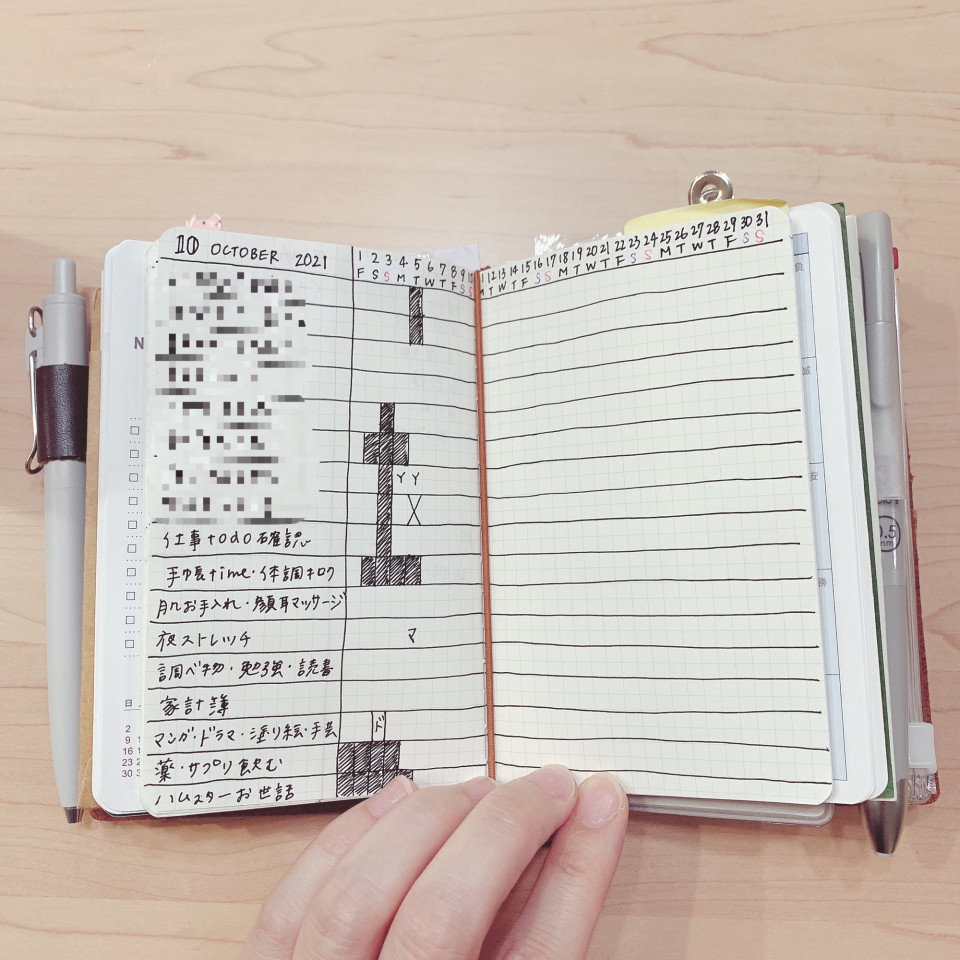 10 OCTOBER 2021
1 2 3 4 5 6 7 8 9
12 13 14 15 16 17 18 19 20 21 22 23 24 25 26 27 28 29 30 31
F S S M T W T F S S
T W T F S S M T W T F S S M T W T F S S
Y Y
X
仕事todo確認
手帳time・体調キロク
肌お手入れ・顔耳マッサージ
夜ストレッチ
マ
調べ物・勉強・読書
家計簿
マンガ・ドラマ・塗り絵・手芸
ド
薬・サプリ飲む
ハムスターお世話
N
日
2
9
16
23
30
負
安
勝
0.5
mm